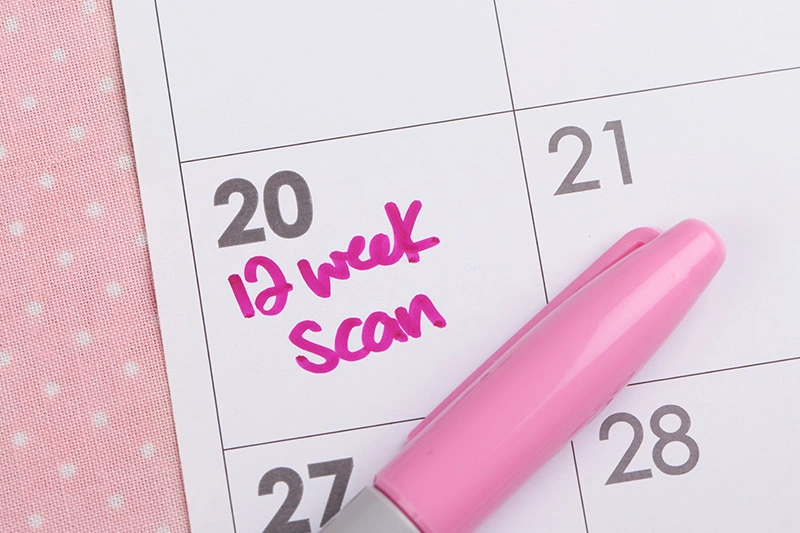 20
12 week
scan
21
27
28